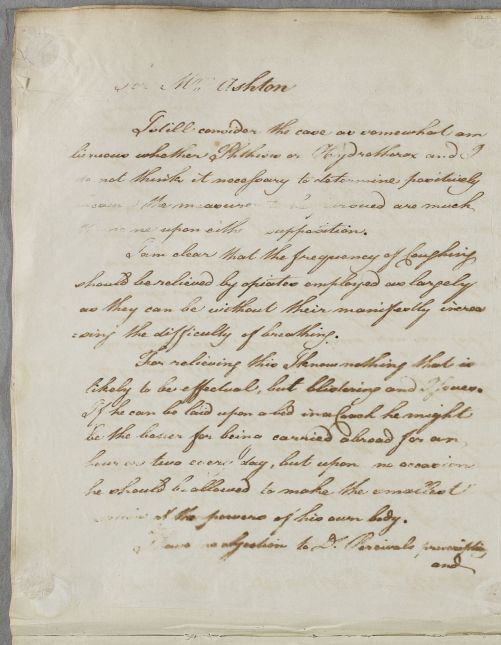 For Mr. Ashton
I still consider the case as somewhat am
biguous whether Phthisis or Hydrothorax and I
do not think it necessary to determine positively
because the measures to be pursued are much
the same upon either supposition.
I am clear that the frequency of Coughing
should be relieved by opiates employed as largely
as they can be without their manifestly increa
=sing the difficulty of breathing.
For relieving this I know nothing that is
likely to be effectual, but blistering and Issues.
If he can be laid upon a bed in a Coach he might
be the better for being carried abroad for an
hour or two every day, but upon no occasion
he should be allowed to make the smallest
of the powers of his own body.
I have no objection to Dr. Percivals prescription
and